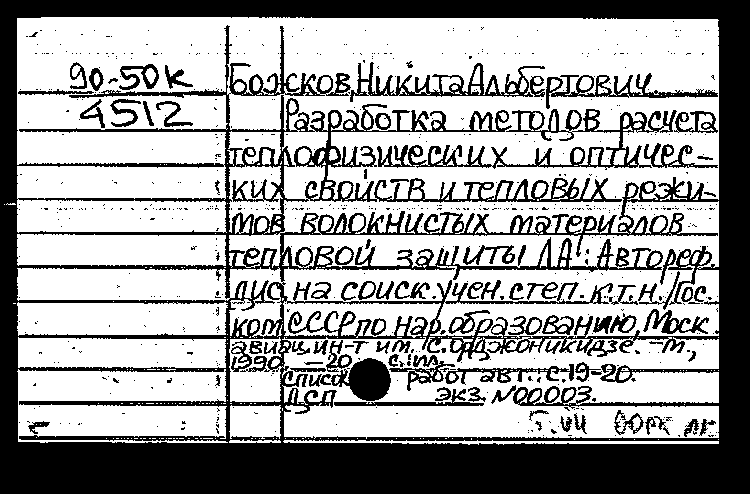 90-50к
4512
Божсков, Никита Альбертович.
Разработка методов расчета
теплофизических и оптичес-
ких свойств и тепловых режи-
мов волокнистых материалов
тепловой защиты ЛА : Автореф.
дис. на соиск. учен. степ. к.т.н. / Гос.
ком. СССР по нар. образованию, Моск.
авиац. ин-т им. С. Орджоникидзе. - М.,
1990. - 20 с. ил.
Список работ авт.: с. 19-20.
ДСП экз. N00003.